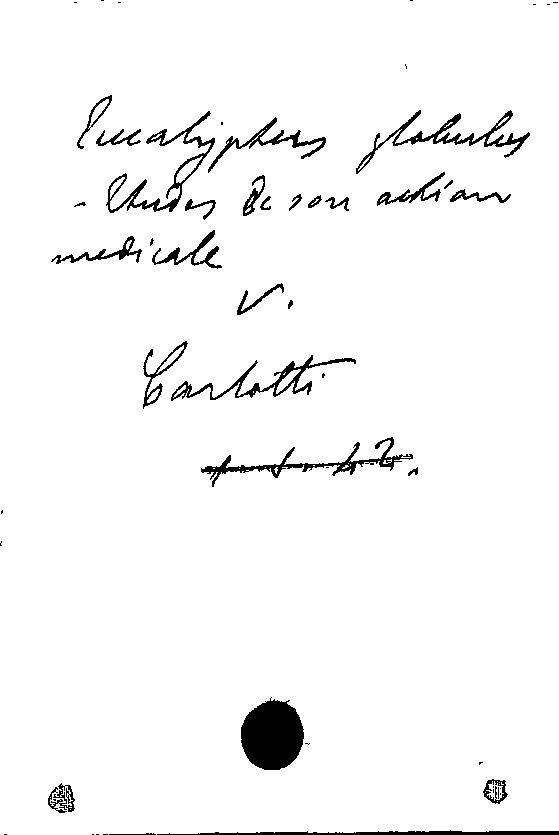 Eucalyptus globulus
- Etudes de son action
medicale
V.
Carlotti